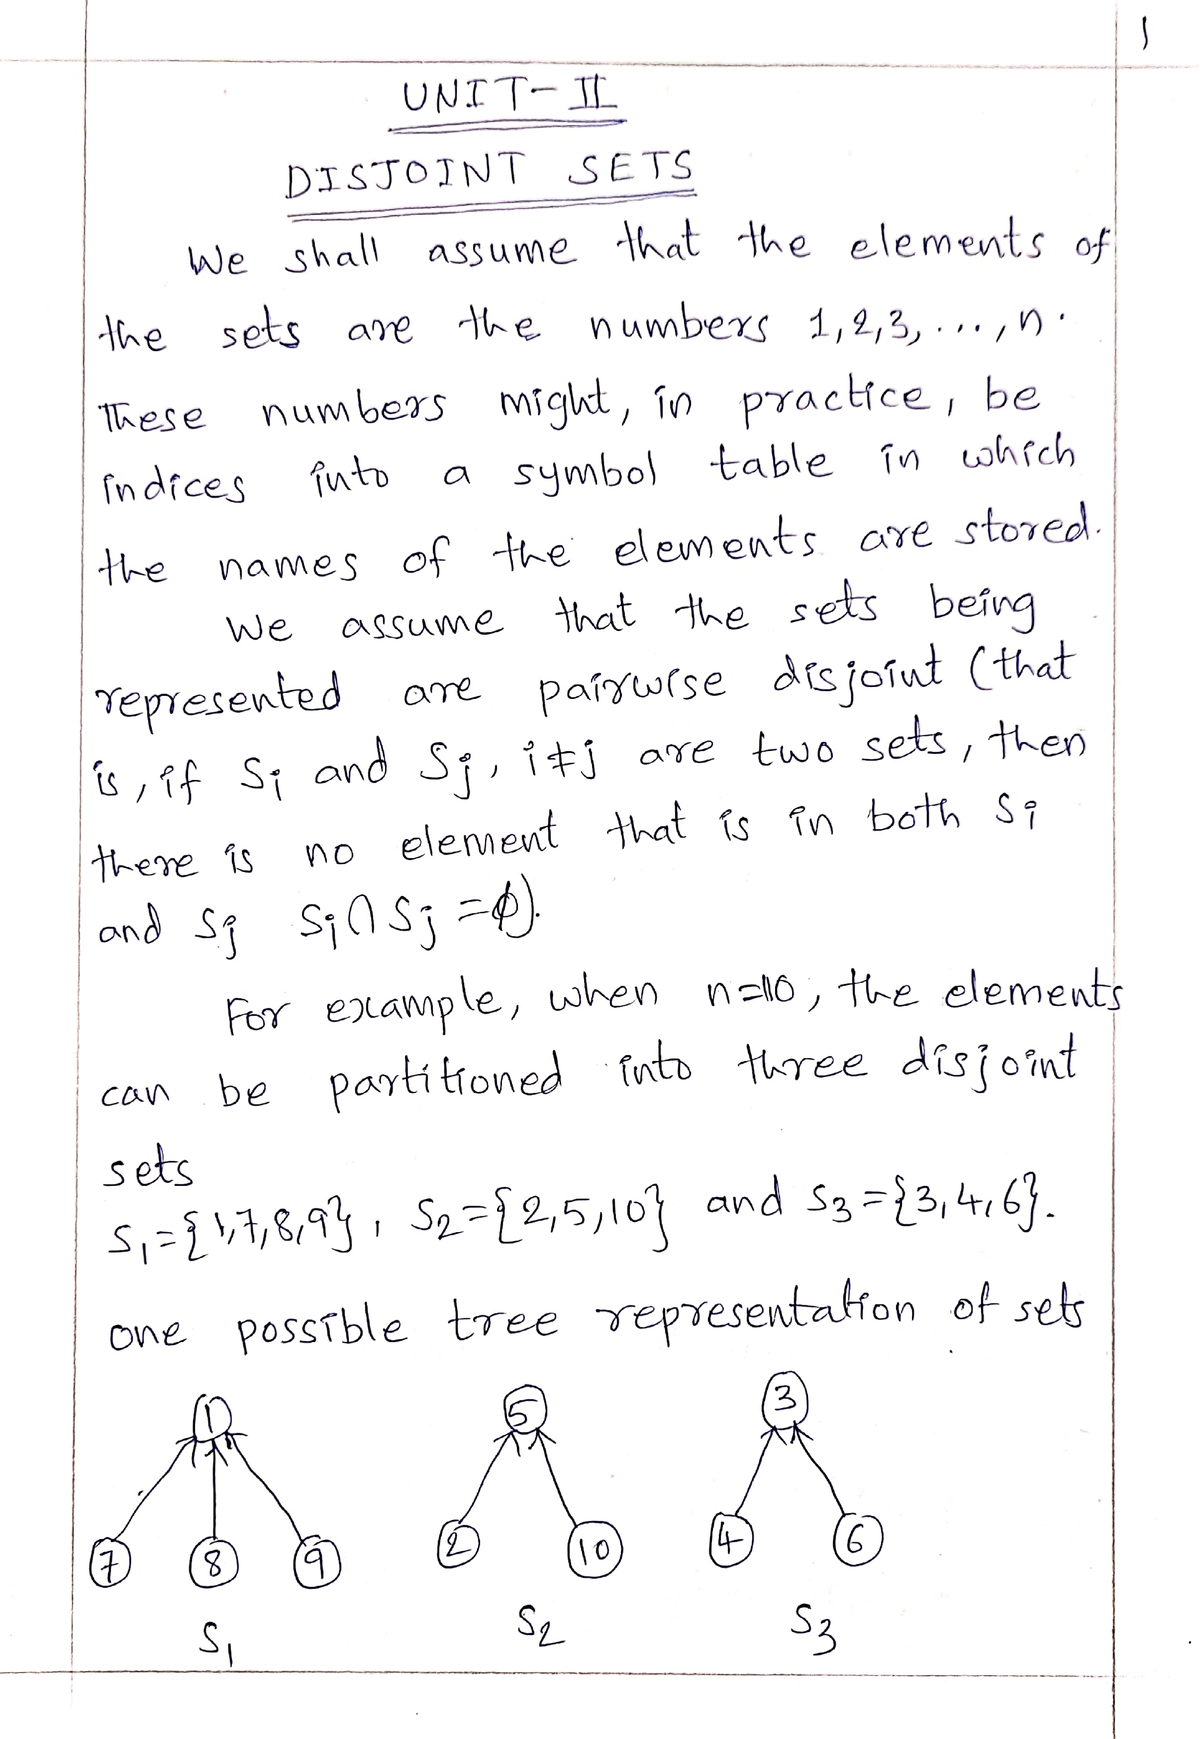 1
UNIT-II
DISJOINT SETS
We shall assume that the elements of
the sets are the numbers 1,2,3, ...,n.
These numbers might, in practice, be
indices into a symbol table in which
the names of the elements are stored.
We assume that the sets being
represented are pairwise disjoint (that
is, if Si and Sj, i≠j are two sets, then
there is no element that is in both Si
and Sj Si∩Sj =ϕ).
For example, when n=10, the elements
can be partitioned into three disjoint
sets
S1={1,7,8,9}, S2={2,5,10} and S3={3,4,6}.
one possible tree representation of sets
1 5 3
7 8 9 2 10 4 6
S1 S2 S3